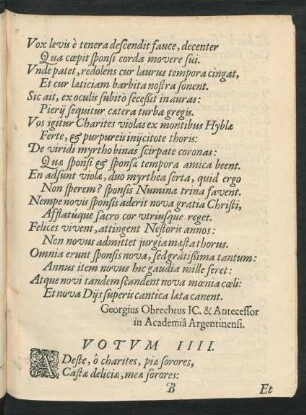 Vox levis è tenera descendit fauce, decenter
Qua cœpit sponsi corda movere sui.
Vnde patet, redolens cur laurus tempora cingat,
Et cur lætitiam barbita nostra sonent.
Sic ait, ex oculis subitò secessit in auras:
Pieriò sequitur cætera turba gregis.
Vos igitur Charites violas ex montibus Hyblæ
Ferte, & purpureis injicitote thoris:
De viridi myrtho binas scirpate coronas:
Quæ sponsi & sponsæ tempora amica beent.
En adsunt violæ, duo myrthea serta, quid ergo
Non sperem? sponsis Numina trina favent.
Nempe novis sponsis aderit nova gratia Christi,
Afflatúque sacro cor vtriusque reget.
Felices vivent, attingent Nestoris annos:
Non novus admittet jurgia mœsta thorus.
Omnia erunt sponsis nova, sed gratissima tantum:
Annus item novus hic gaudia mille feret:
Atque novi tandem scandent nova mœnia cœli:
Et nova Dijs superis cantica læta canent.
Georgius Obrechtus IC. & Antecessor
in Academiâ Argentinensi.
VOTVM IIII.
ADeste, ò charites, piæ sorores,
Castæ deliciæ, meæ sorores:
B Et